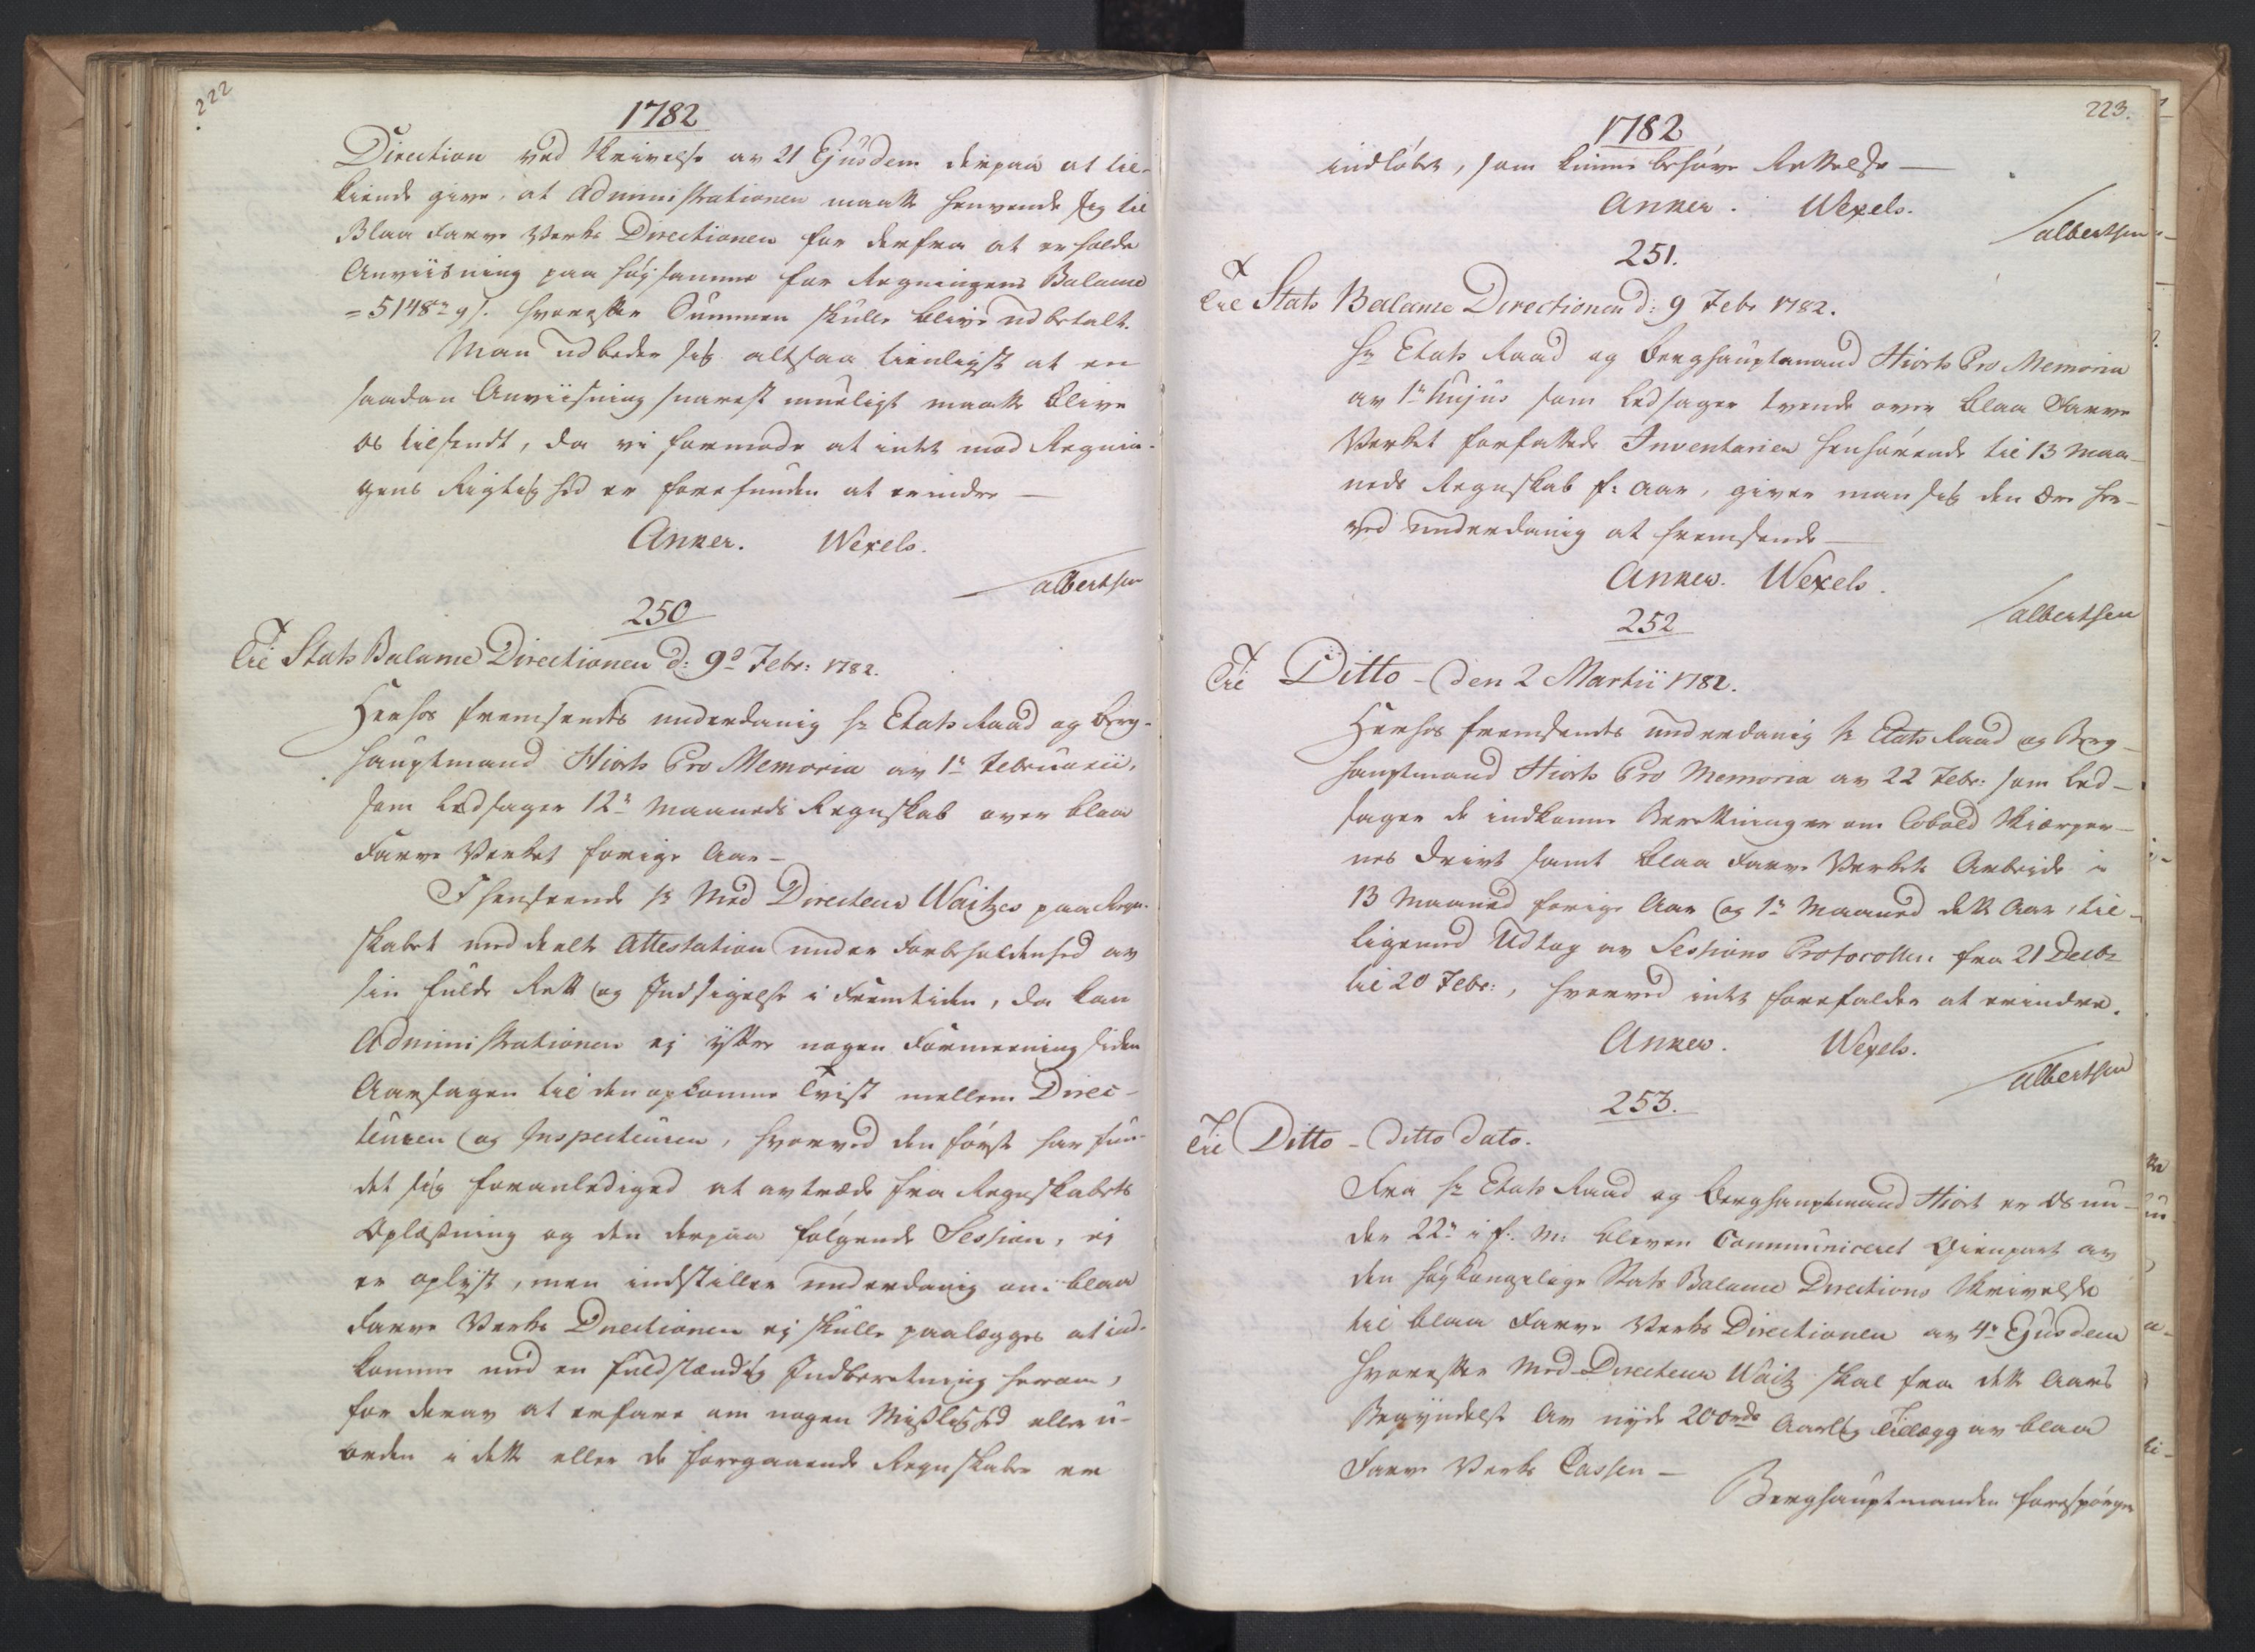 222
1782
Direction ved Skrivelse av 21 Ejusdem derpaa at til-
kiende give, at Administrationen maatte henvende sig til
Blaa Farve Verks Directionen for derfra at erholde
Anviisning paa høysamme for Regningens Balance
= 5148 hvorefter Summen skulle blive udbetalt.
Man udbeder sig altsaa tienligst at en
saadan Anviisning snarest mueligt maatte blive
os tilsendt, da vi formode at intet mod Regnin-
gens Rigtighed er forefunden at erindre —
Anker. Wexels.
Albertsen
250
Til Stats Balance Directionen d: 9d Febr: 1782.
Herhos fremsendes underdanig Hr Etats Raad og Berg-
hauptmand Hiorts Pro Memoria av 1r Februarii,
som ledsager 12r Maaneds Regnskab over blaa
Farve Verket forige Aar —
I henseende Hr Med Directeur Waitzes paa Regn-
skabet meddeelte Attestation under Forbeholdenhed av
sin fulde Rett og Indsigelse i Fremtiden, da kan
Administrationen ej yttre nogen Formeening siden
Aarsagen til den opkomne Tvist mellem Direc-
teuren og Inspecteuren, hvorved den første har fun-
det sig foranlediget at avtræde fra Regnskabets
Oplæsning og den derpaa følgende Session, ej
er oplyst, men indstiller underdanig om blaa
Farve Verks Directionen ej skulle paalægges at ind-
komme med en fuldstændig Indberetning herom,
for derav at erfare om nogen Misslighed eller u-
orden i dette eller de foregaaende Regnskaber er
223.
1782
indløbet, som kunne behøve Rettelse —
Anker. Wexels.
Albertsen
251.
Til Stats Balance Directionen d: 9 Febr 1782.
Hr Etats Raad og Berghauptmand Hiorts Pro Memoria
av 1r hujus som ledsager tvende over blaa Farve
Verket forfattede Inventarier henhørende til 13 Maa-
neds Regnskab f: Aar, giver man sig den Ære her-
ved underdanig at fremsende —
Anker. Wexels.
Albertsen
252
Til Ditto – den 2 Martii 1782.
Herhos fremsendes underdanig Hr Etats Raad og Berg-
hauptmand Hiorts Pro Memoria av 22 Febr: som led-
sager de indkomne Beretninger om Cobold Skiærper-
nes Drivt samt blaa Farve Verkets Arbeide i
13 Maaned forige Aar og 1r Maaned dette Aar, til-
ligemed Udtog av Sessions Protocollen fra 21 Decbr
til 20 Febr:, hvorved intet forefalder at erindre.
Anker. Wexels.
Albertsen
253.
Til Ditto – ditto dato.
Fra Hr Etats Raad og Berghauptmand Hiort er os un-
der 22r i f. M: bleven Communiceret Gienpart av
den høy Kongelige Stats Balance Directions Skrivelse
til blaa Farve Verks Directionen av 4r Ejusdem
hvorefter Med-Directeur Waitz skal fra dette Aars
Begyndelse av nyde 200rd Aarlig Tillægg av blaa
Farve Verks Cassen —
Berghauptmanden forespørger